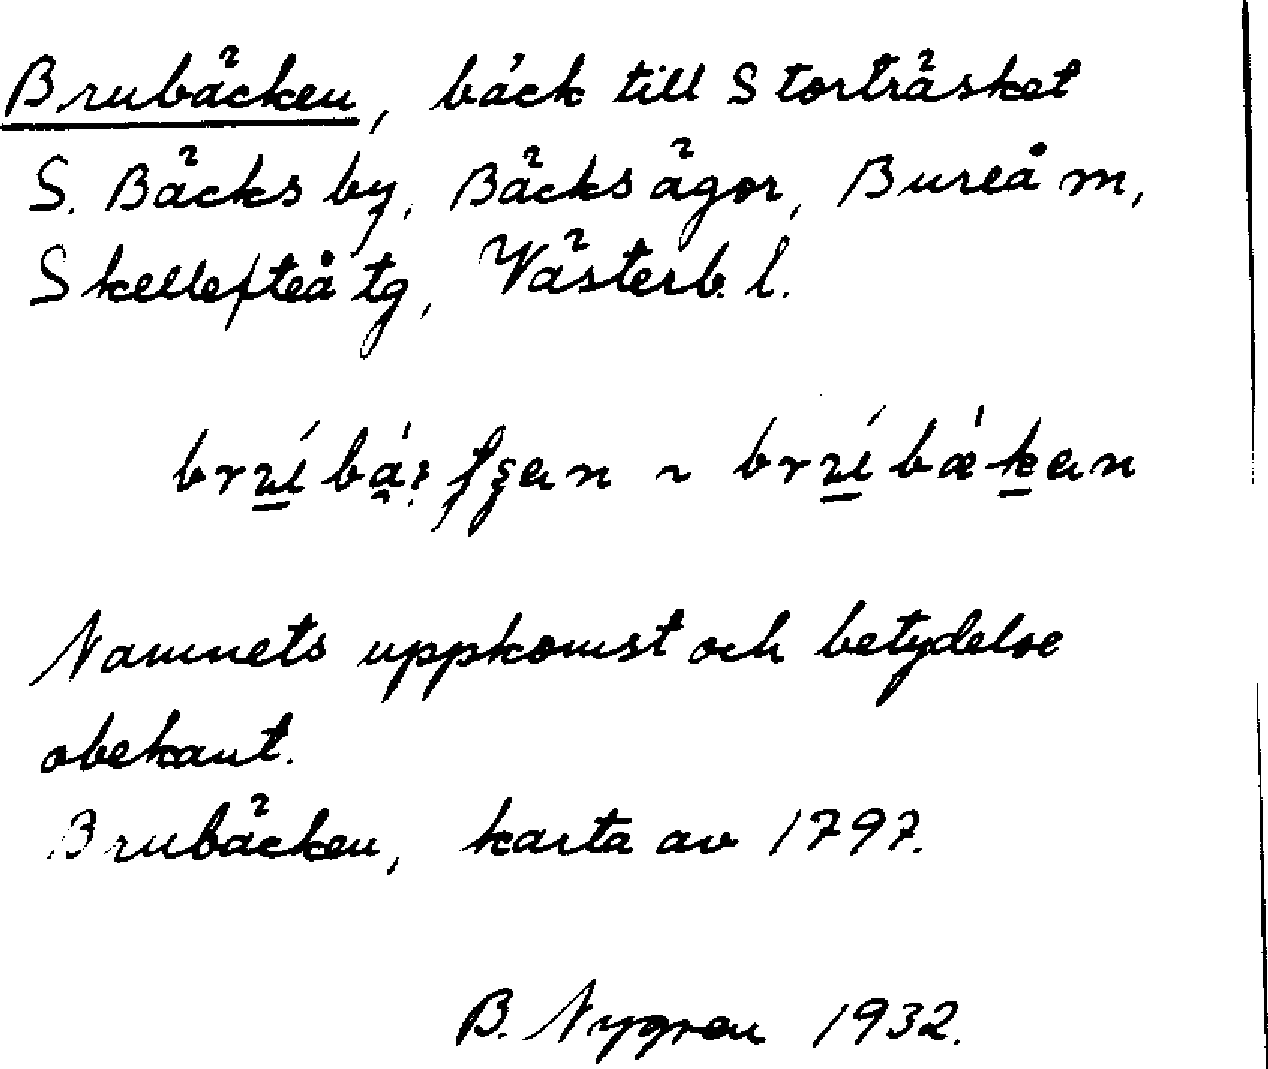 Brubäcken, bäck till Storträsket
S. Bäcks by, Bäcks ägor, Bureå m,
Skellefteå tg, Västerb. l.
Namnets uppkomst och betydelse
obekant.
Brubäcken, karta av 1797.
B. Nygren 1932.